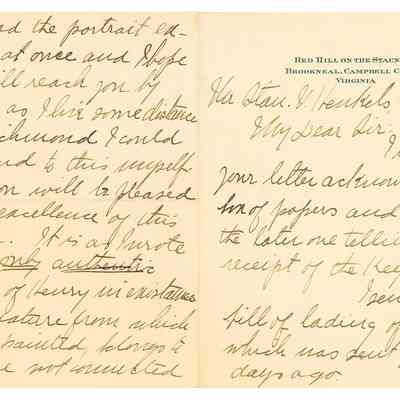 RED HILL ON THE STAUN
BROOKNEAL, CAMPBELL C
VIRGINIA
Stan. V. Henkels
My Dear Sir:
your letter acknow
box of papers and
the later one telli
receipt of the Key
I sen
bill of lading of
which was sent
days ago.
ad the portrait ex-
at once and I hope
ill reach you by
as I live some distance
ichmond I could
nd to this myself.
on will be pleased
excellence of this
It is as I wrote
only authentic
of Henry in existence
iature from which
painted, belongs to
e not connected